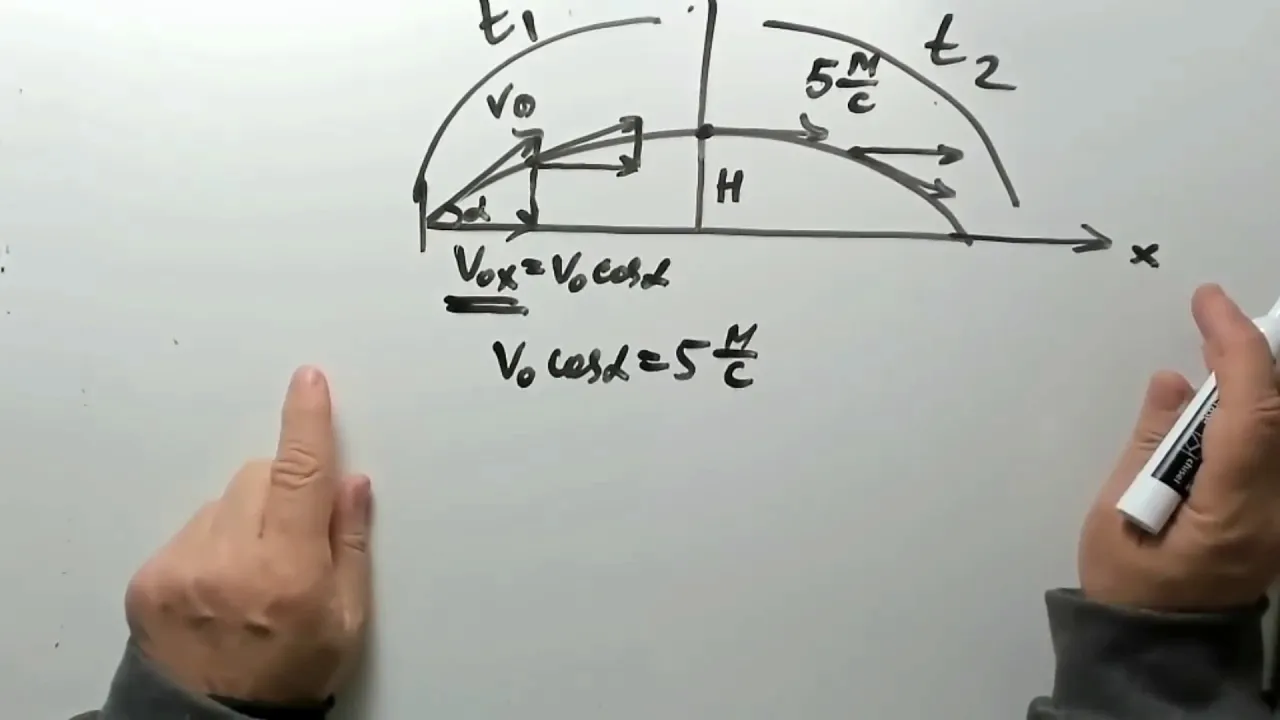 t₁
t₂
V₀
5 м/с
H
α
x
V₀ₓ = V₀ cosα
V₀ cosα = 5 м/с